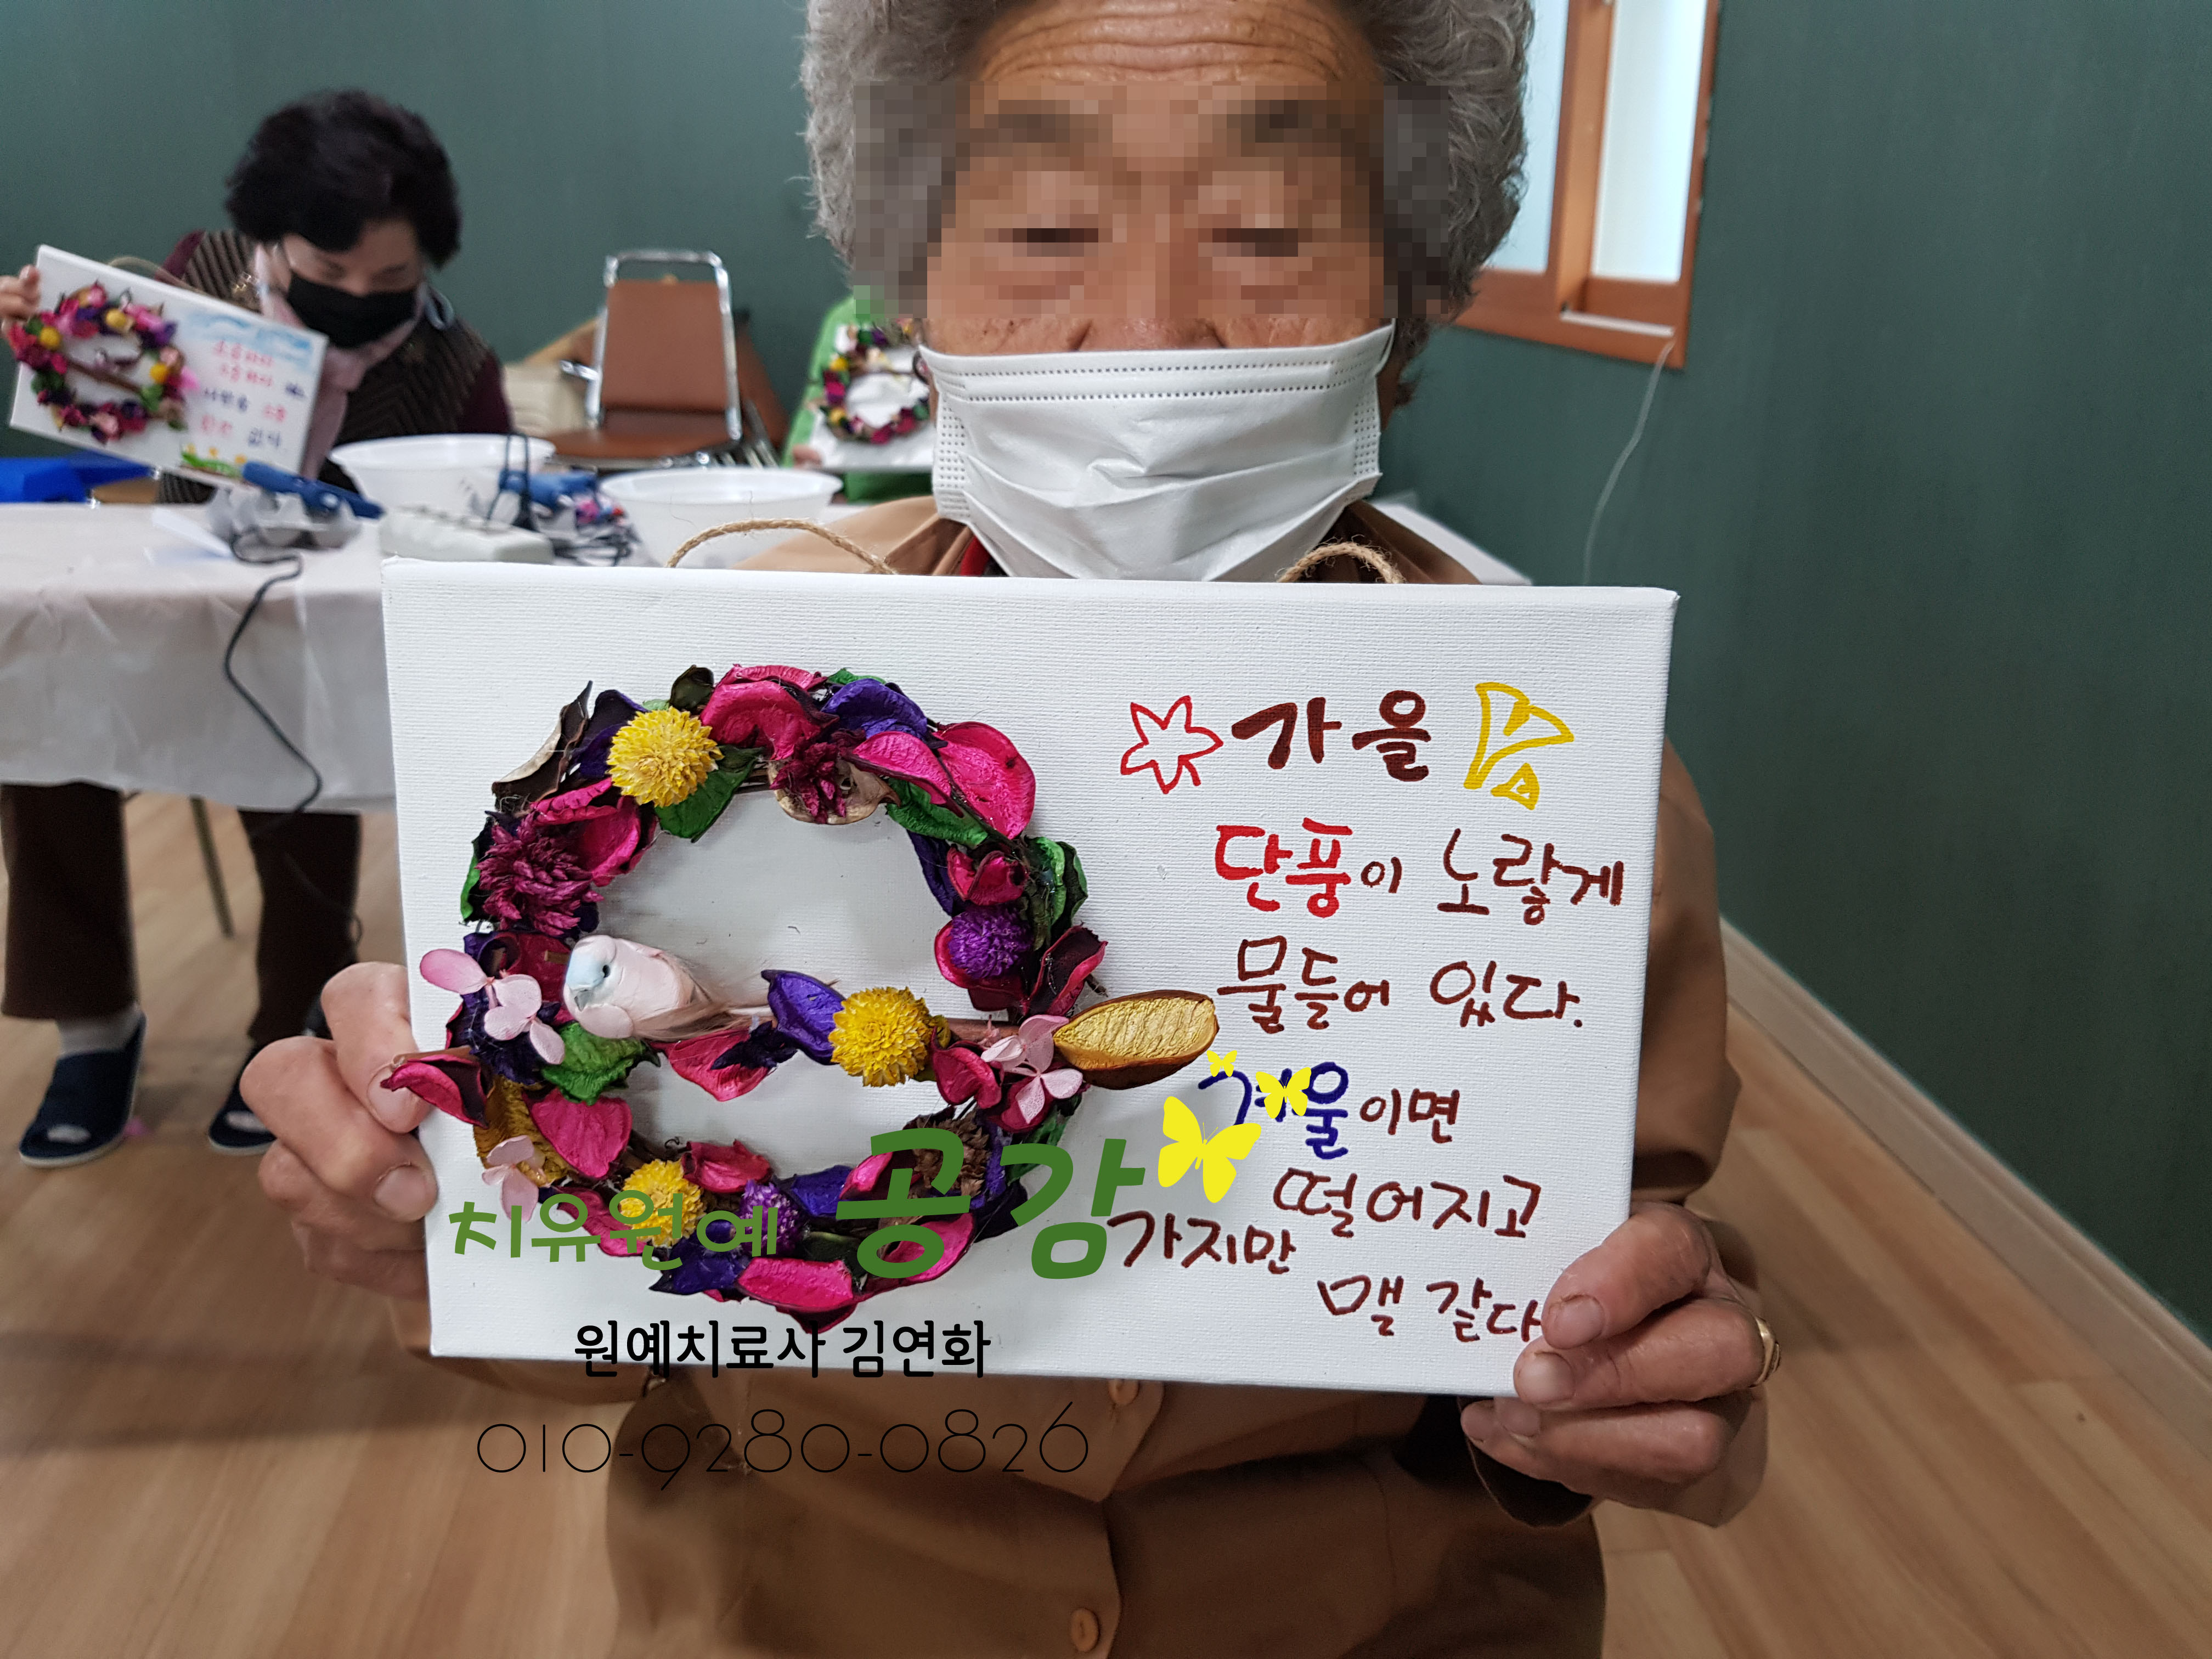 가을
단풍이 노랗게
물들어 있다.
겨울이면
떨어지고
가지만
맬 같다
치유원예 공감
원예치료사 김연화
010-9280-0826